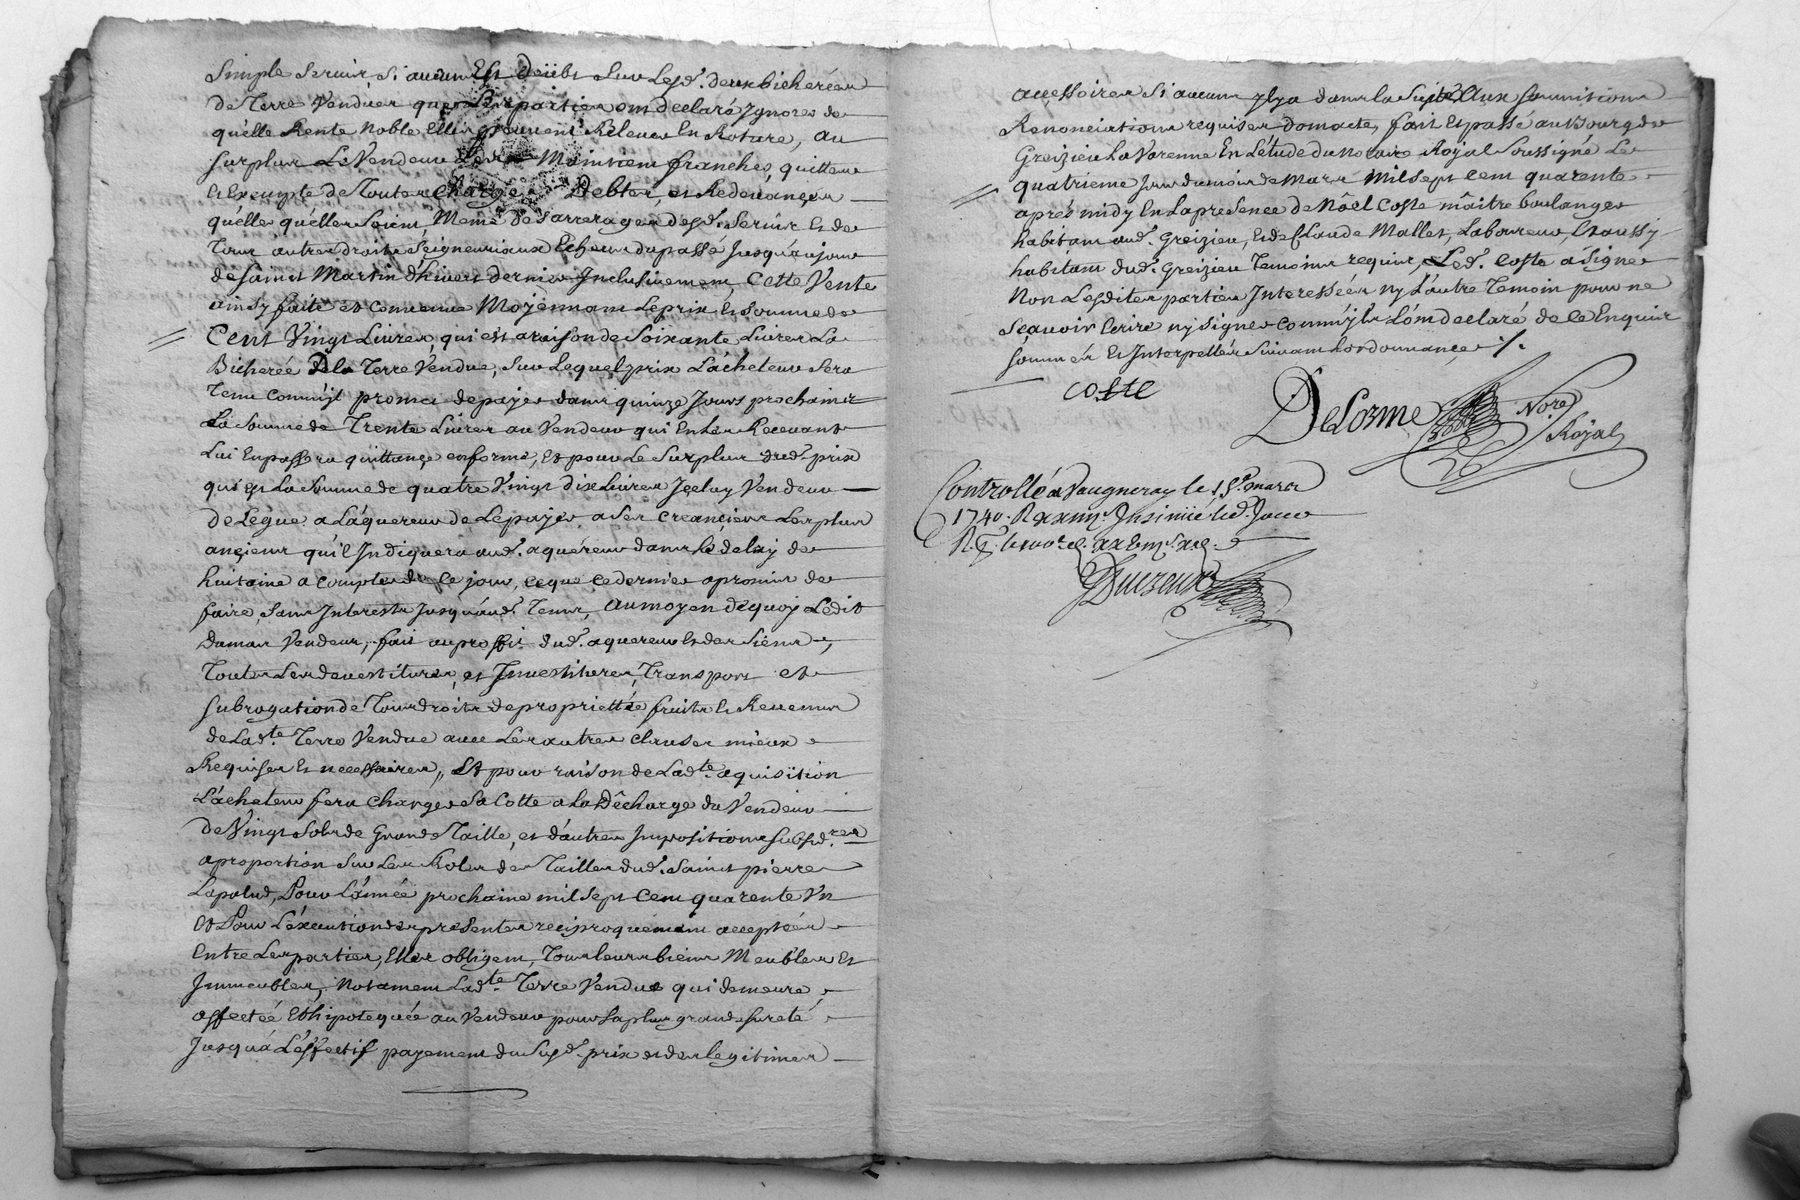 Simple Servis si aucun Est deübt sur Lesd. deux bicherées
de Terre Vendües que Les parties ont declaré Ignorer de
quelle Rente Noble Elles peuvent Relever En Roture, au
surplus Le Vendeur Les Maintient franches, quittes
Et Exempte de Toutes Charges Debtes, et Redevances
quelles quelles Soient, Meme des arrerages desd. Servis et de
Tous autres droits Seigneuriaux Echeus du passé Jusqu'aujour
de saint Martin d'hivert dernier Inclusivement, Cette Vente
ainsy faite et convenue Moyennant Le prix Et somme de
Cent Vingt Livres, qui est a raison de Soixante Livres La
Bicherée De la Terre Vendue, sur Lequel prix L'acheteur sera
Tenu comm'jl promet de payer dans quinze Jours prochains
La Somme de Trente Livres au Vendeur qui En Les Recevant
Lui En passera quittance en forme, Et pour Le Surplus dud. prix
qui est La Somme de quatre Vingt dix Livres Jceluy Vendeur
delegue a L'aquereur de Le payer a Ses creanciers Les plus
anciens qu'il Jndiquera aud. aquéreur dans le delay de
huitaine a compter de ce jour, ce que ce dernier a promis de
faire, Sans Jnterests Jusqu'aud. Tems, au moyen dequoy Ledit
Damas Vendeur, fait au proffit dud. aquereur Et des Siens,
Toutes Les devestitures, et Jnvestitures, Transport et
subrogation de Tous droits de propriettée fruits Et Revenus
de Lad.te Terre Vendue avec Les autres clauses mieux
Requises Et necessaires, Et pour raison de Lad.te aquisition
L'acheteur fera charger Sa Cotte a La Décharge du Vendeur
De Vingt Sols de Grande Taille, et d'autres Jmpositions subsid.res
a proportion sur Les Roles des Tailles dud. Saint pierre
Lapalud, Pour L'année prochaine mil sept Cent quarente Vn
Et Pour L'éxecution des presentes reciproquement acceptées
Entre Les parties, Elles obligent, Tous leurs biens Meubles Et
Jmmeubles, Notament Lad.te Terre Vendue qui demeure
affectée Et hipotequée au Vendeur pour sa plus grande sureté
Jusqu'a L'éffectif payement du Susd. prix et des legitimes
accessoires Si aucuns jl y a dans la Suite Aux soumitions
Renonciations requises dont acte, fait Et passé au Bourg de
Greizieu La Varenne En L'étude du Notaire Royal Soussigné Le
quatrieme jour du mois de Mars Mil sept cent quarente
aprés midy En La presence de Noël Coste mâitre boulanger
habitant aud. Greizieu, Et de Claude Mallet, Laboureur, Et aussy
habitant dud. Greizieu Temoins requis, Led. Coste a Signé
Non Lesdites parties Interessées ny L'autre Temoin pour ne
Sçavoir Ecrire ny signer comm'jls L'ont declaré de ce Enquis
sommés Et Jnterpellés Suivant L'ordonnance ./.
coste
DeLorme Nore Royal
Controllé a Vaugneray le 15e. mars
1740. R Jnsinüé led. Jour
R
Ducreux